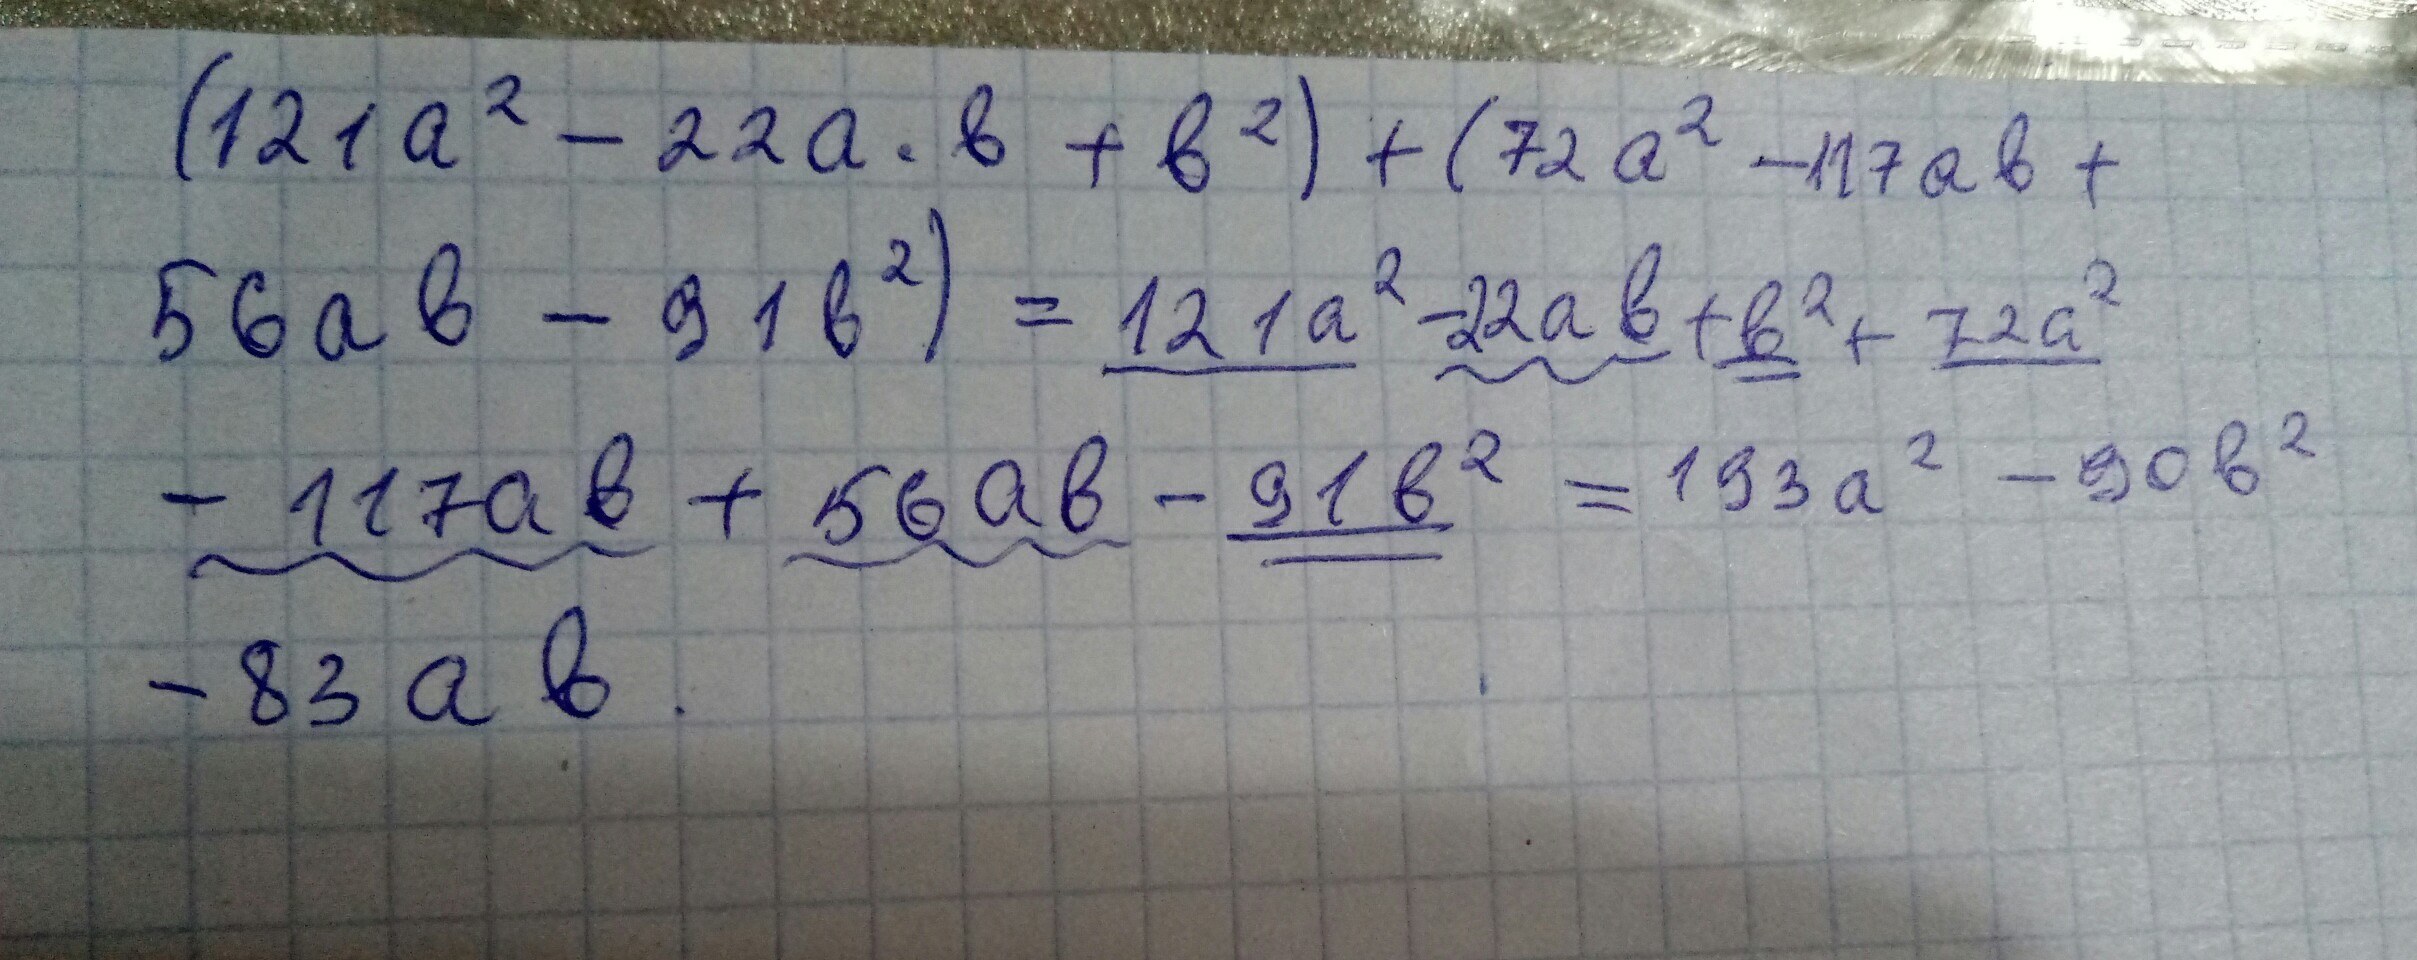 (121a² - 22a · b + b²) + (72a² - 117ab +
56ab - 91b²) = 121a² - 22ab + b² + 72a²
- 117ab + 56ab - 91b² = 193a² - 90b²
- 83ab.